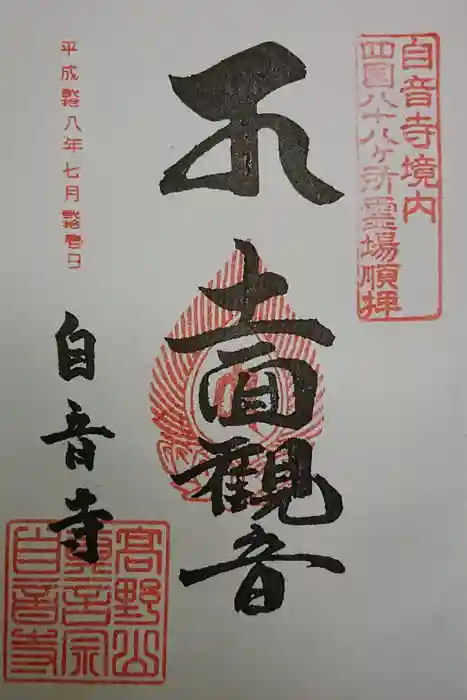 白音寺境内
四国八十八ヶ所霊場順拝
十一面觀音
平成弐拾八年七月弐拾日
白音寺
高野山
真言宗
白音寺